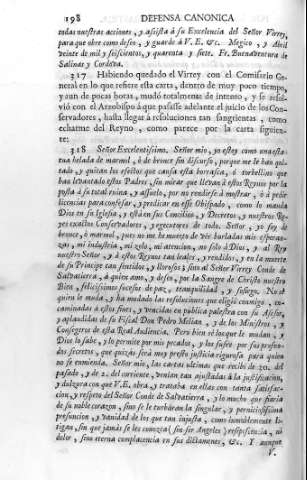 198 DEFENSA CANONICA
todas nuestras acciones, y assista à su Excelencia del Señor Virrey,
para que obre como deseo, y guarde à V. E. &c. Megico, y Abril
veinte de mil y seiscientos, y quarenta y siete. Fr. Buenaventura de
Salinas y Cordova.
317 Habiendo quedado el Virrey con el Comisario Ge-
neral en lo que refiere esta carta, dentro de muy poco tiempo,
y aun de pocas horas, mudò totalmente de intento, y se resol-
viò con el Arzobispo à que passasse adelante el juicio de los Con-
servadores, hasta llegar à resoluciones tan sangrientas, como
echarme del Reyno, como parece por la carta siguien-
te:
318 Señor Excelentissimo. Señor mio, yo estoy como una esta-
tua helada de marmol, ò de bronce sin discurso, porque me le han qui-
tado, y quitan los efectos que causa esta borrasca, ò torbellino que
han levantado estos Padres, sin mirar que llevan à estos Reynos por la
posta à su total ruina, y assuelo, por no rendirse à mostrar, ò à pedir
licencias para confesar, y predicar en esse Obispado, como lo manda
Dios en su Iglesia, y està en sus Concilios, y Decretos, y nuestros Re-
yes exactos Conservadores, y egecutores de todo. Señor, yo soy de
bronce, ò marmol, pues no me he muerto de vèr burladas mis esperan-
zas, mi industria, mi zelo, mi atencion, no solo à Dios, y al Rey
nuestro Señor, y à estos Reynos tan leales, y rendidos, y en la muerte
de su Principe tan sentidos, y llorosos; sino al Señor Virrey Conde de
Salvatierra, à quien amo, y deseo, por la Sangre de Christo nuestro
Bien, felicissimos sucesos de paz, tranquilidad, y sosiego. No sè
quien le muda, y ha mudado las resoluciones que eligiò conmigo, en-
caminadas à estos fines, y vencidas en publica palestra con su Asesor,
y aplaudidas de su Fiscal Don Pedro Melian, y de los Ministros, y
Consegeros de esta Real Audiencia. Pero bien sè lo que le mudan, y
Dios lo sabe, y lo permite por mis pecados, y los suyos por sus profun-
dos secretos, que quizàs serà muy presto justicia rigurosa para quien
no se enmienda. Señor mio, las cartas ultimas que recibì de 20. del
pasado, y de 2. del corriente, venian tan ajustadas à la justificacion,
y dulzura con que V. E. obra, y trataba en ellas con tanta satisfac-
cion, y respeto del Señor Conde de Salvatierra, y lo mucho que fiaria
de su noble corazon, sino se le turbàran la singular, y perniciosissima
presuncion, y vanidad de los que tan injusta, como inviolablemente li-
tigan, sin que jamàs se les conozca (sin ser Angeles) resipiscencia, ni
dolor, sino eterna complacencia en sus dictamenes, &c. I aunque
V.